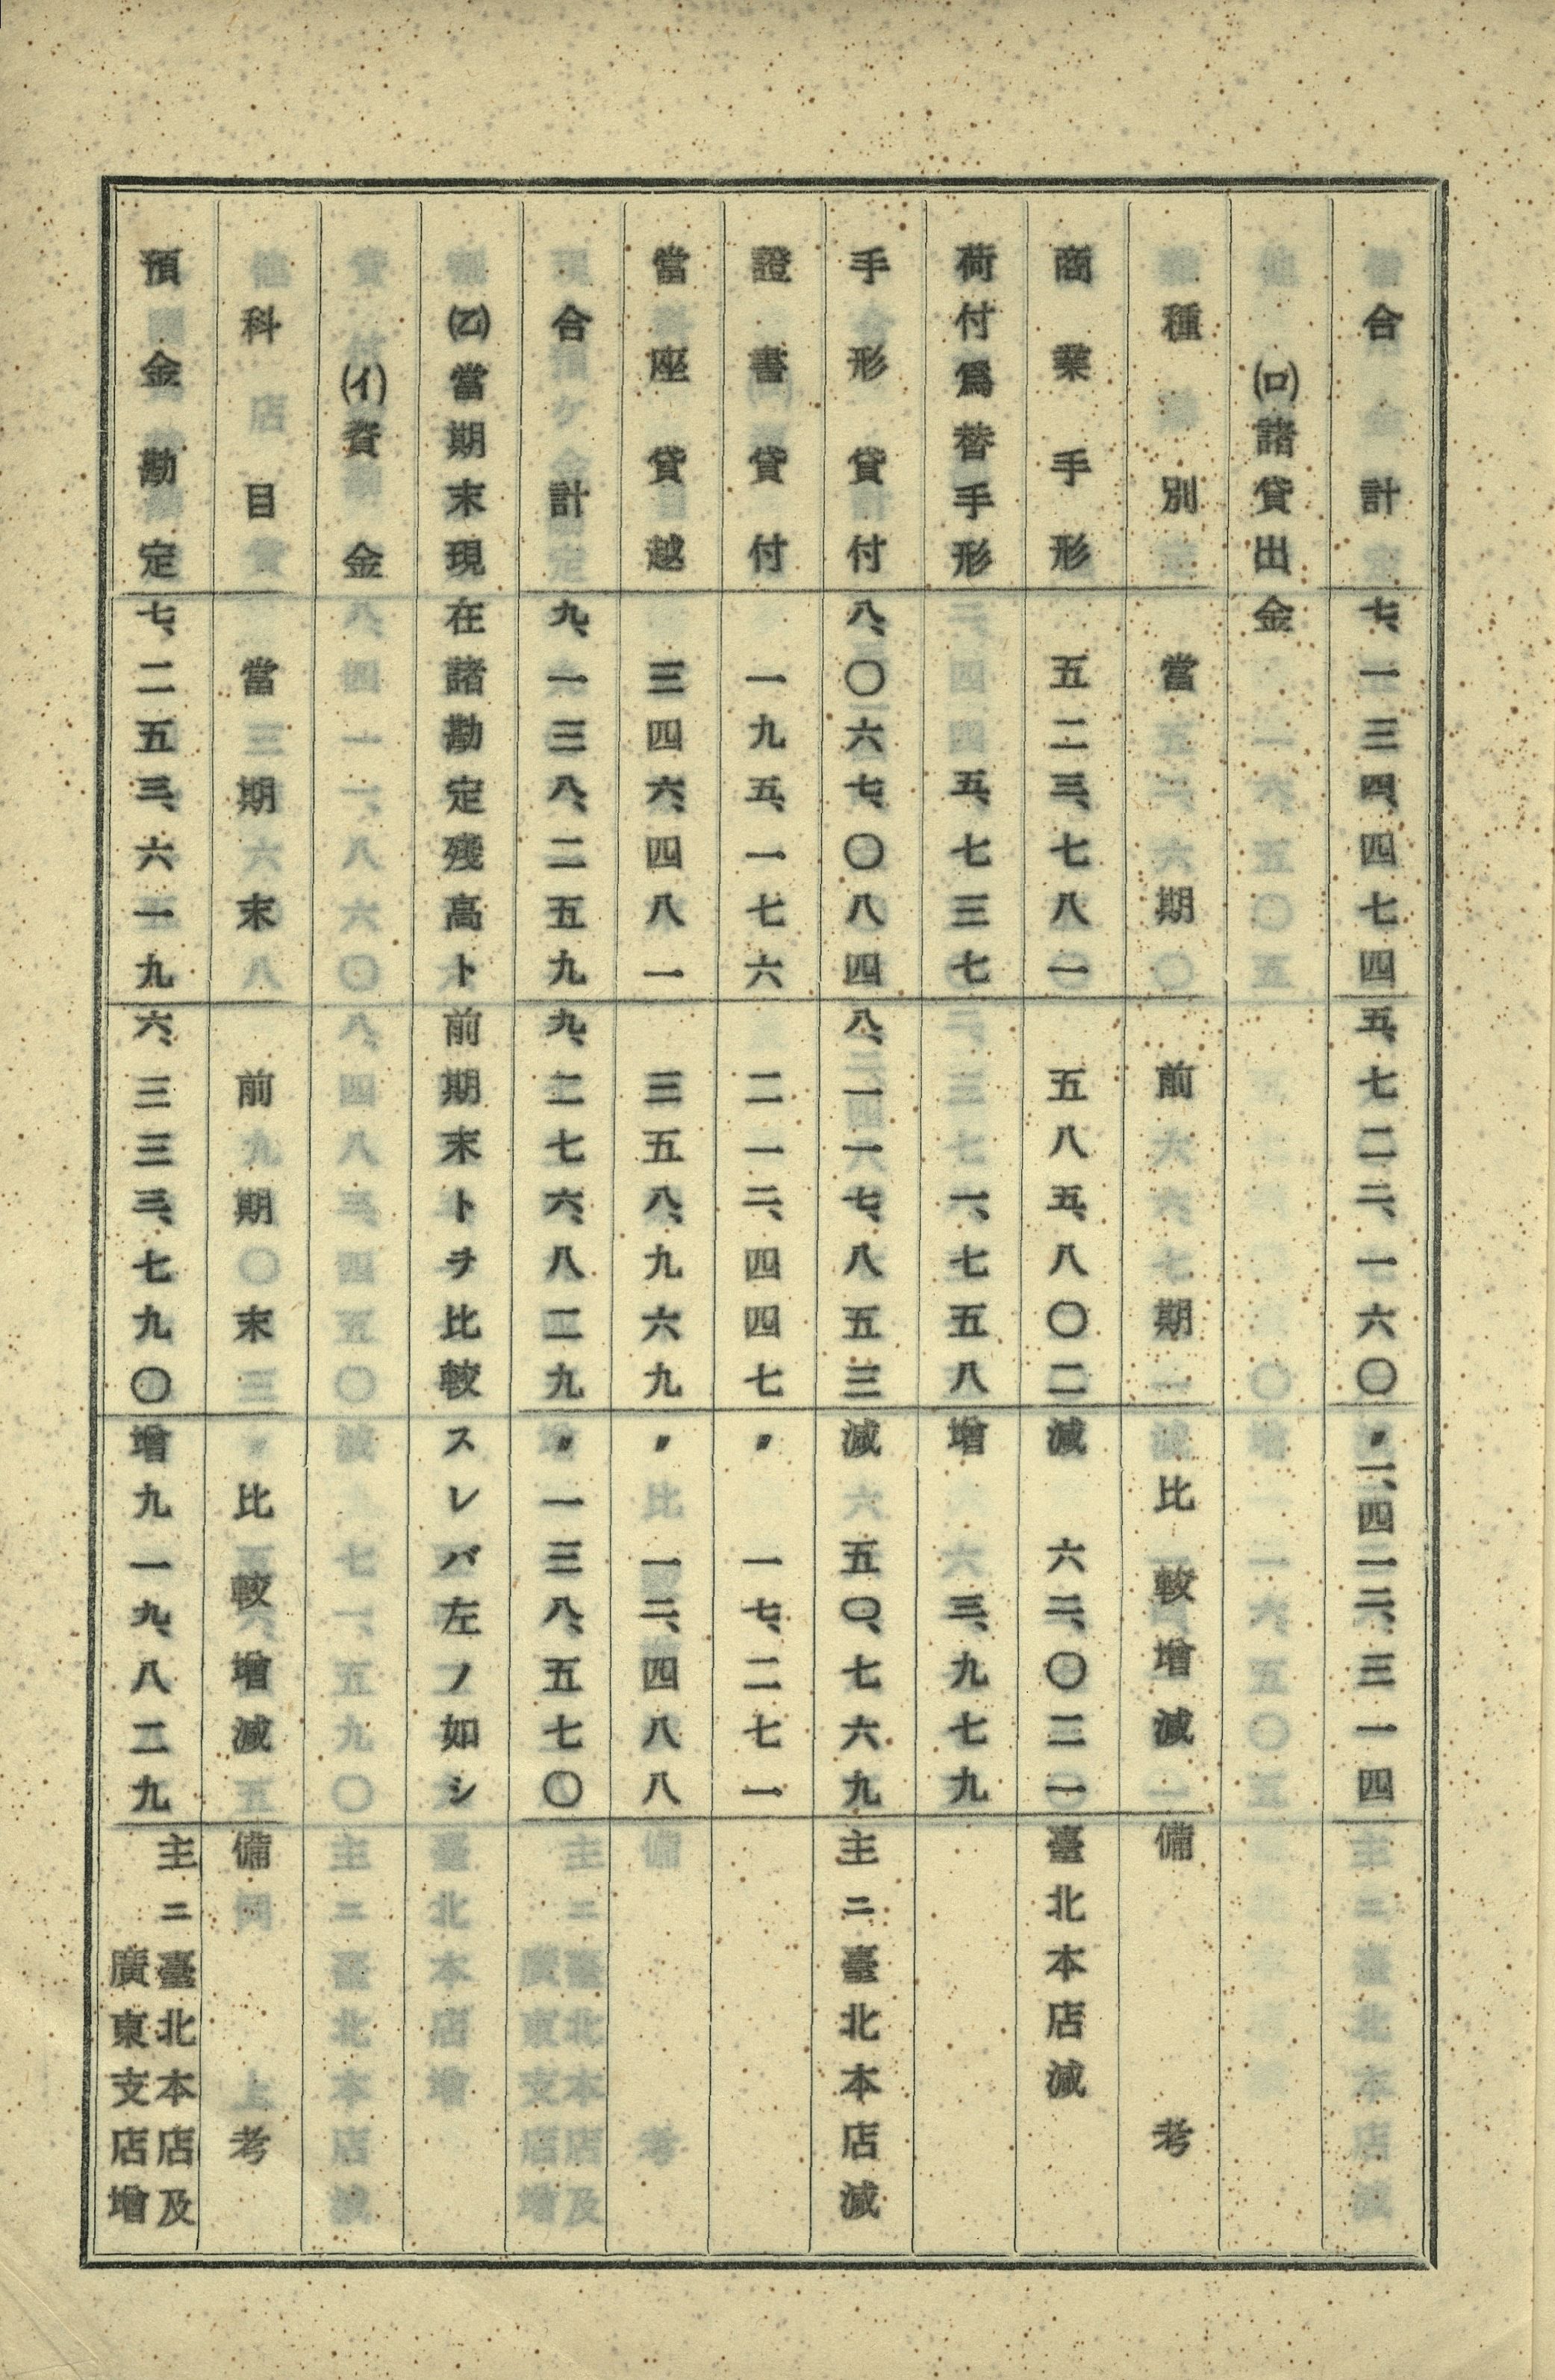 合計 七、一三四、四七四 五、七二二、一六〇 〃一、四一二、三一四
(ロ)諸貸出金
種別 當期 前期 比較增減 備考
商業手形 五二三、七八一 五八五、八〇二 減 六二、〇二一 臺北本店減
荷付爲替手形 五、七三七 一、七五八 增 三、九七九
手形貸付 八、〇六七、〇八四 八、一一七、八五三 減 五〇、七六九 主ニ臺北本店減
證書貸付 一九五、一七六 二一二、四四七 〃 一七、二七一
當座貸越 三四六、四八一 三五八、九六九 〃 一二、四八八
合計 九、一三八、二五九 九、二七六、八二九 〃 一三八、五七〇
(乙)當期末現在諸勘定殘高ト前期末トヲ比較スレバ左ノ如シ
(イ)資金
科目 當期末 前期末 比較增減 備考
預金勘定 七、二五三、六一九 六、三三三、七九〇 增九一九、八二九 主ニ臺北本店及
廣東支店增